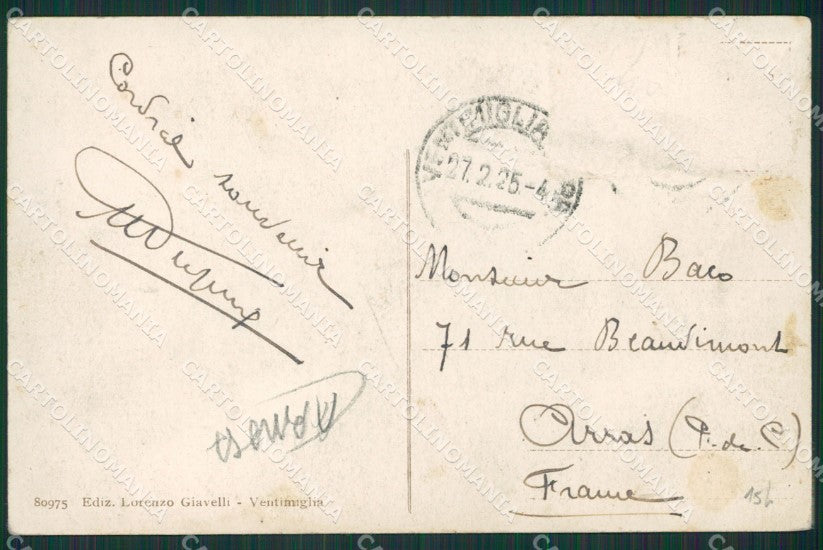 Cordial souvenir
VENTIMIGLIA
27.2.25-4
Monsieur Baco
71 rue Beaudimont
Arras (P. de C)
France
80975 Ediz. Lorenzo Giavelli - Ventimiglia
15/
CARTOLINOMANIA